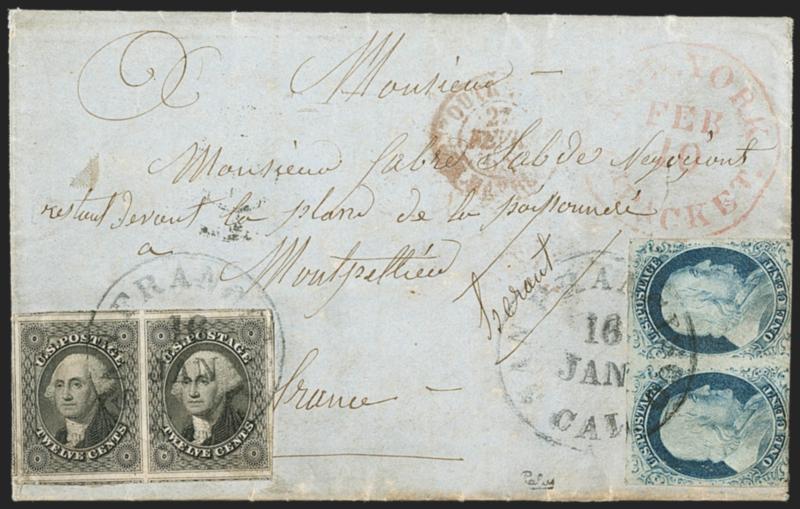 Monsieur
NEW YORK
FEB
10
PACKET.
Monsieur Fabre Lab de Negotiont
restant devant la place de la poissonnerie
a
Montpellier
herault
france
FRANC
16
JAN
U.S. POSTAGE
TWELVE CENTS
U.S. POSTAGE
TWELVE CENTS
SAN FRAN
16
JAN
CAL
U.S. POSTAGE
ONE CENT
U.S. POSTAGE
ONE CENT